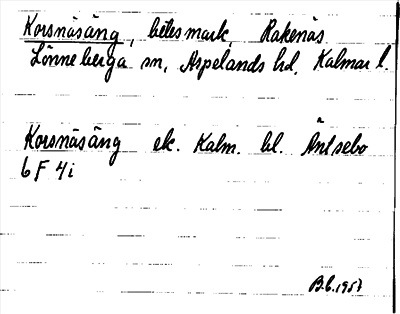 Korsnäsäng, betesmark, Rakenäs
Lönneberga sn, Aspelands hd, Kalmar l.
Korsnäsäng ek. Kalm. bl. Äntsebo
6 F 4i
B.C. 1957